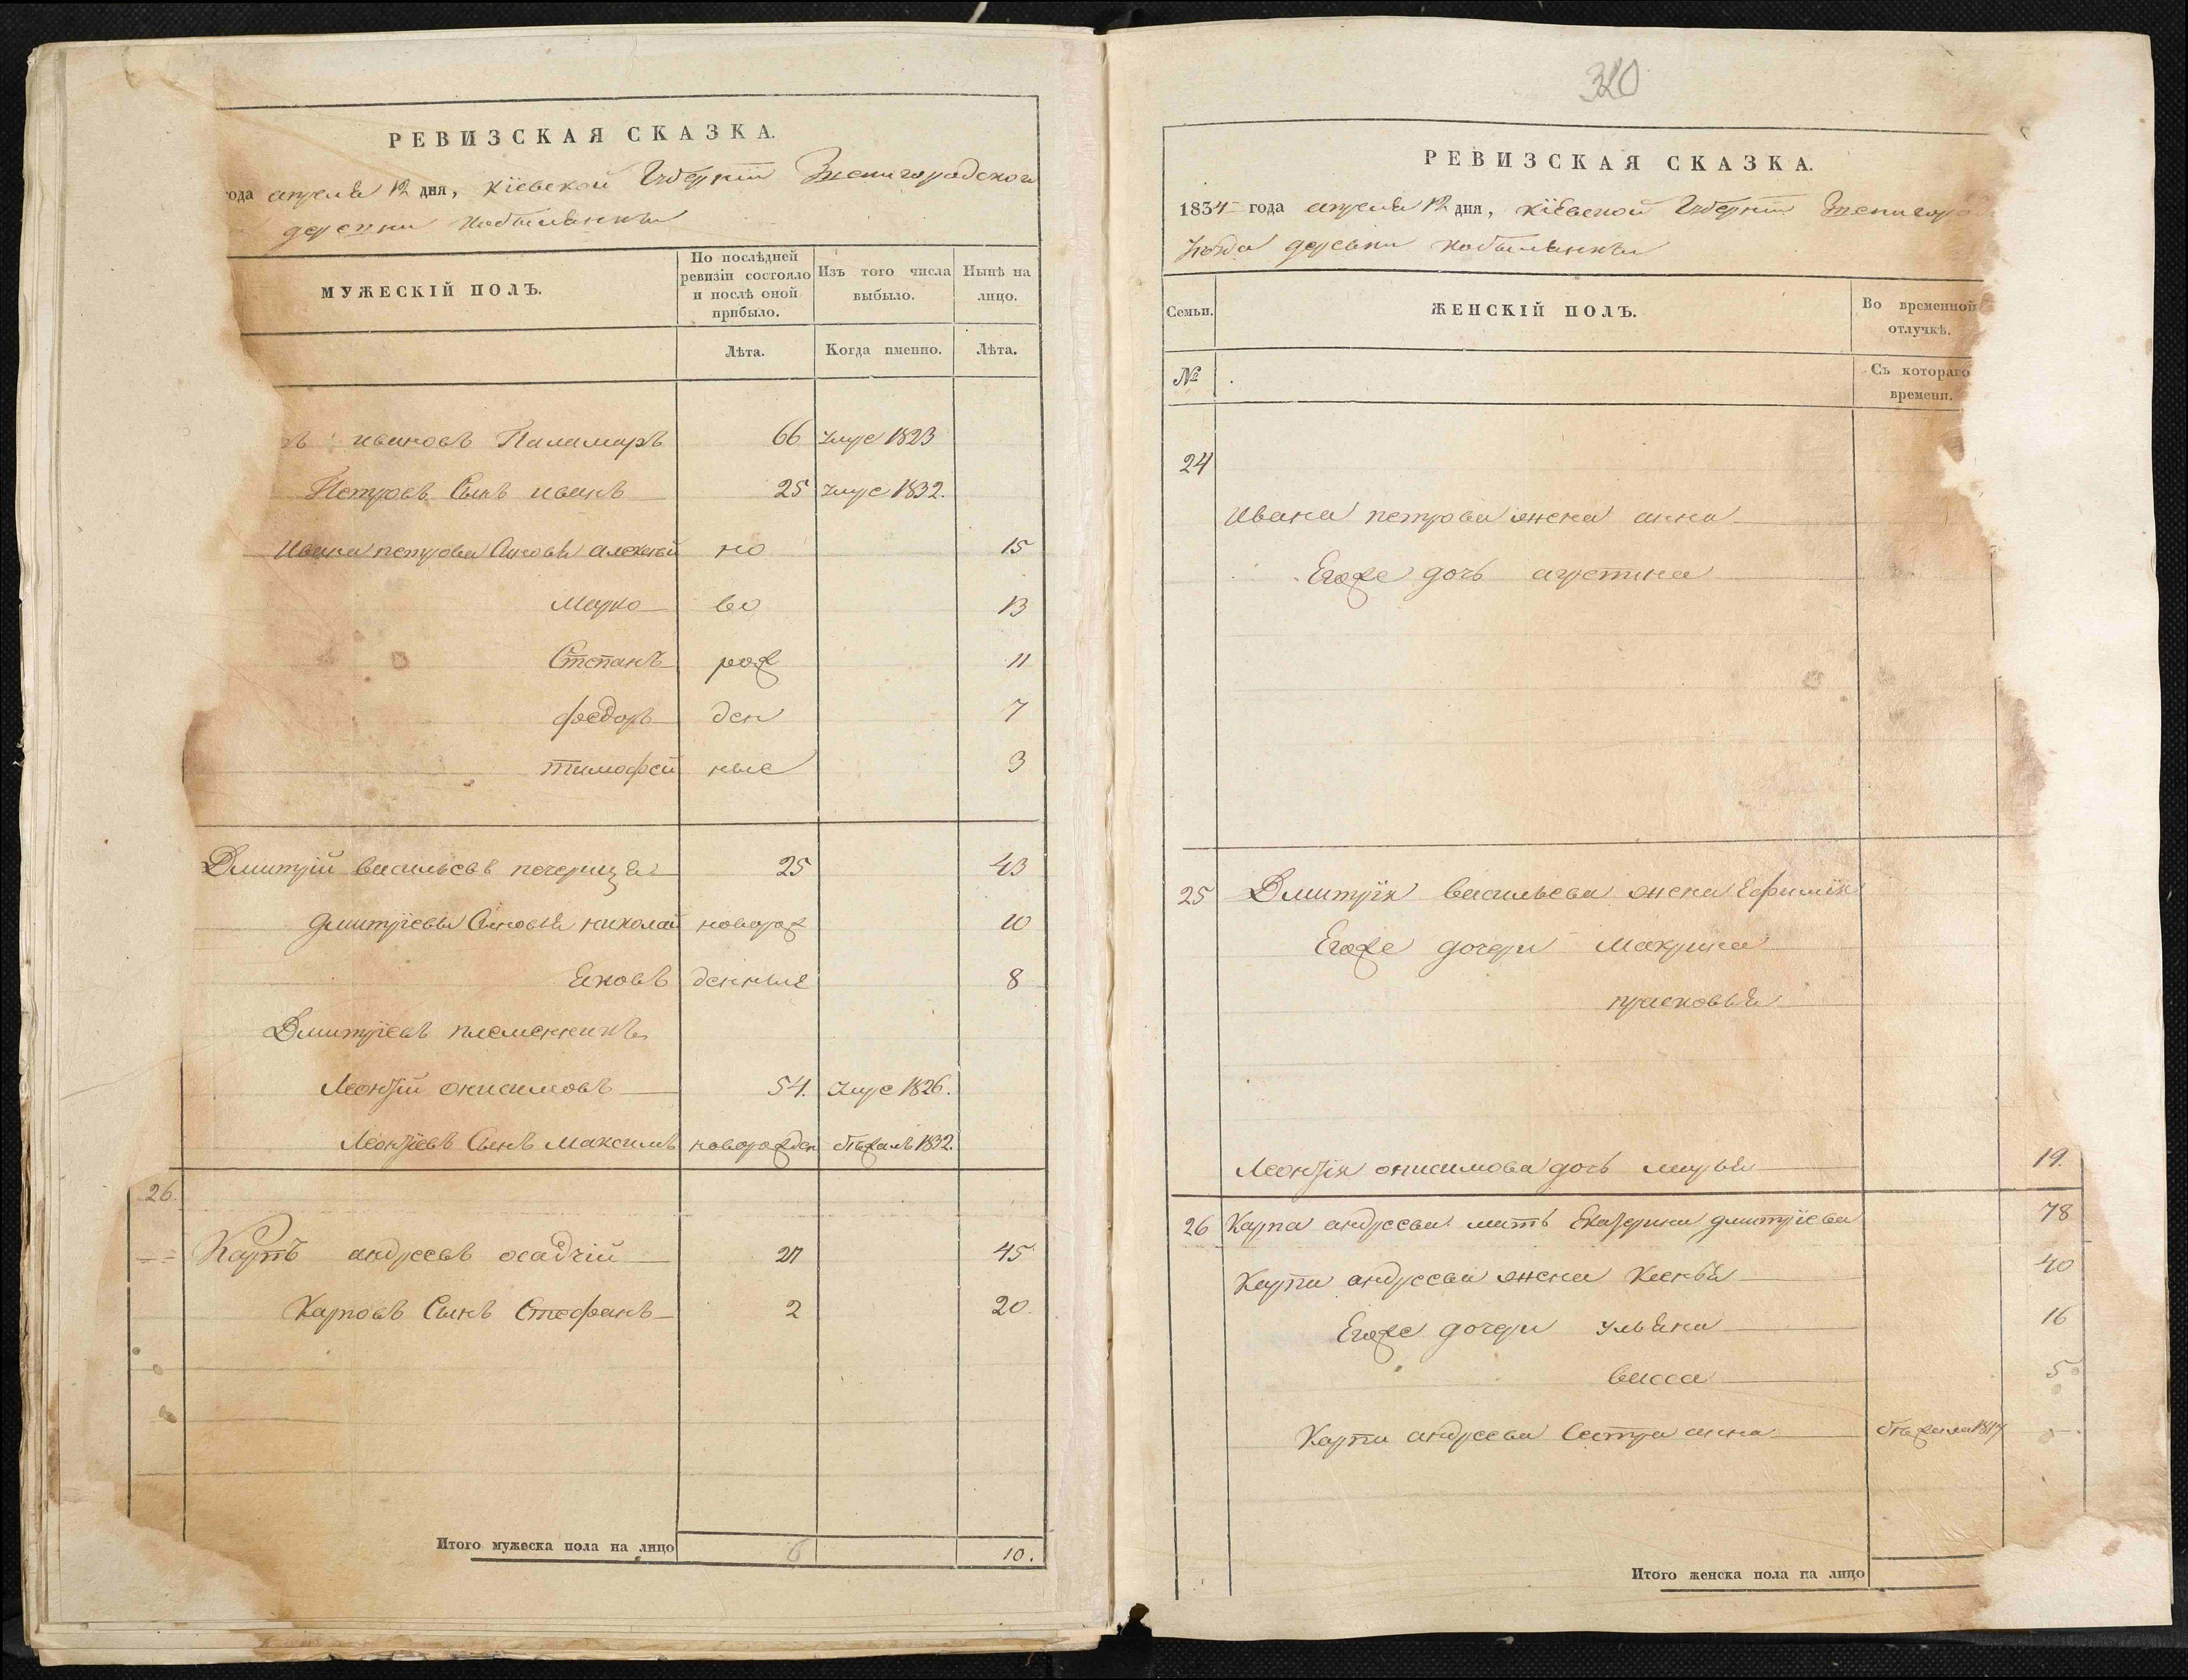 РЕВИЗСКАЯ СКАЗКА.
года апреля 12 дня, Кіевской Губерніи Звенигородского
деревни Кобылянки
МУЖЕСКІЙ ПОЛЪ.
По послѣдней ревизіи состояло и послѣ оной прибыло.
Изъ того числа выбыло.
Нынѣ на лицо.
Лѣта.
Когда именно.
Лѣта.
ръ ивановъ Паламаръ 66 умре 1823
Петровъ Сынъ иванъ 25 умре 1832.
Ивана петрова Сыновья алексей но 15
Марко во 13
Степанъ рож 11
федоръ ден 7
тимофей ные 3
Дмитрій васильевъ печерица 25 43
дмитріевы Сыновья николай новорож 10
Яковъ денные 8
Дмитріевъ племенникъ
Леонтій онисимовъ 54. умре 1826.
Леонтіевъ Сынъ Максимъ новорожден бѣжалъ 1832.
26.
Карпъ андреевъ осадчій 27 45
Карповъ Сынъ Стефанъ 2 20.
Итого мужеска пола на лицо 6 10.
320
РЕВИЗСКАЯ СКАЗКА.
1834 года апреля 12 дня, Кіевской Губерніи Звенигород
уезда деревни Кобылянки
Семьи.
ЖЕНСКІЙ ПОЛЪ.
Во временной отлучкѣ.
№
Съ котораго времени.
24
Ивана петрова жена анна
Егоже дочь агрепина
25 Дмитрія васильева жена Ефимія
Егоже дочери Макрина
прасковья
Леонтія онисимова дочь марья 19.
26 Карпа андреева мать Екатерина дмитріева 78
Карпа андреева жена Ксенья 40
Егоже дочери ульяна 16
васса 5
Карпа андреева Сестра анна бѣжала 1817 —
Итого женска пола на лицо